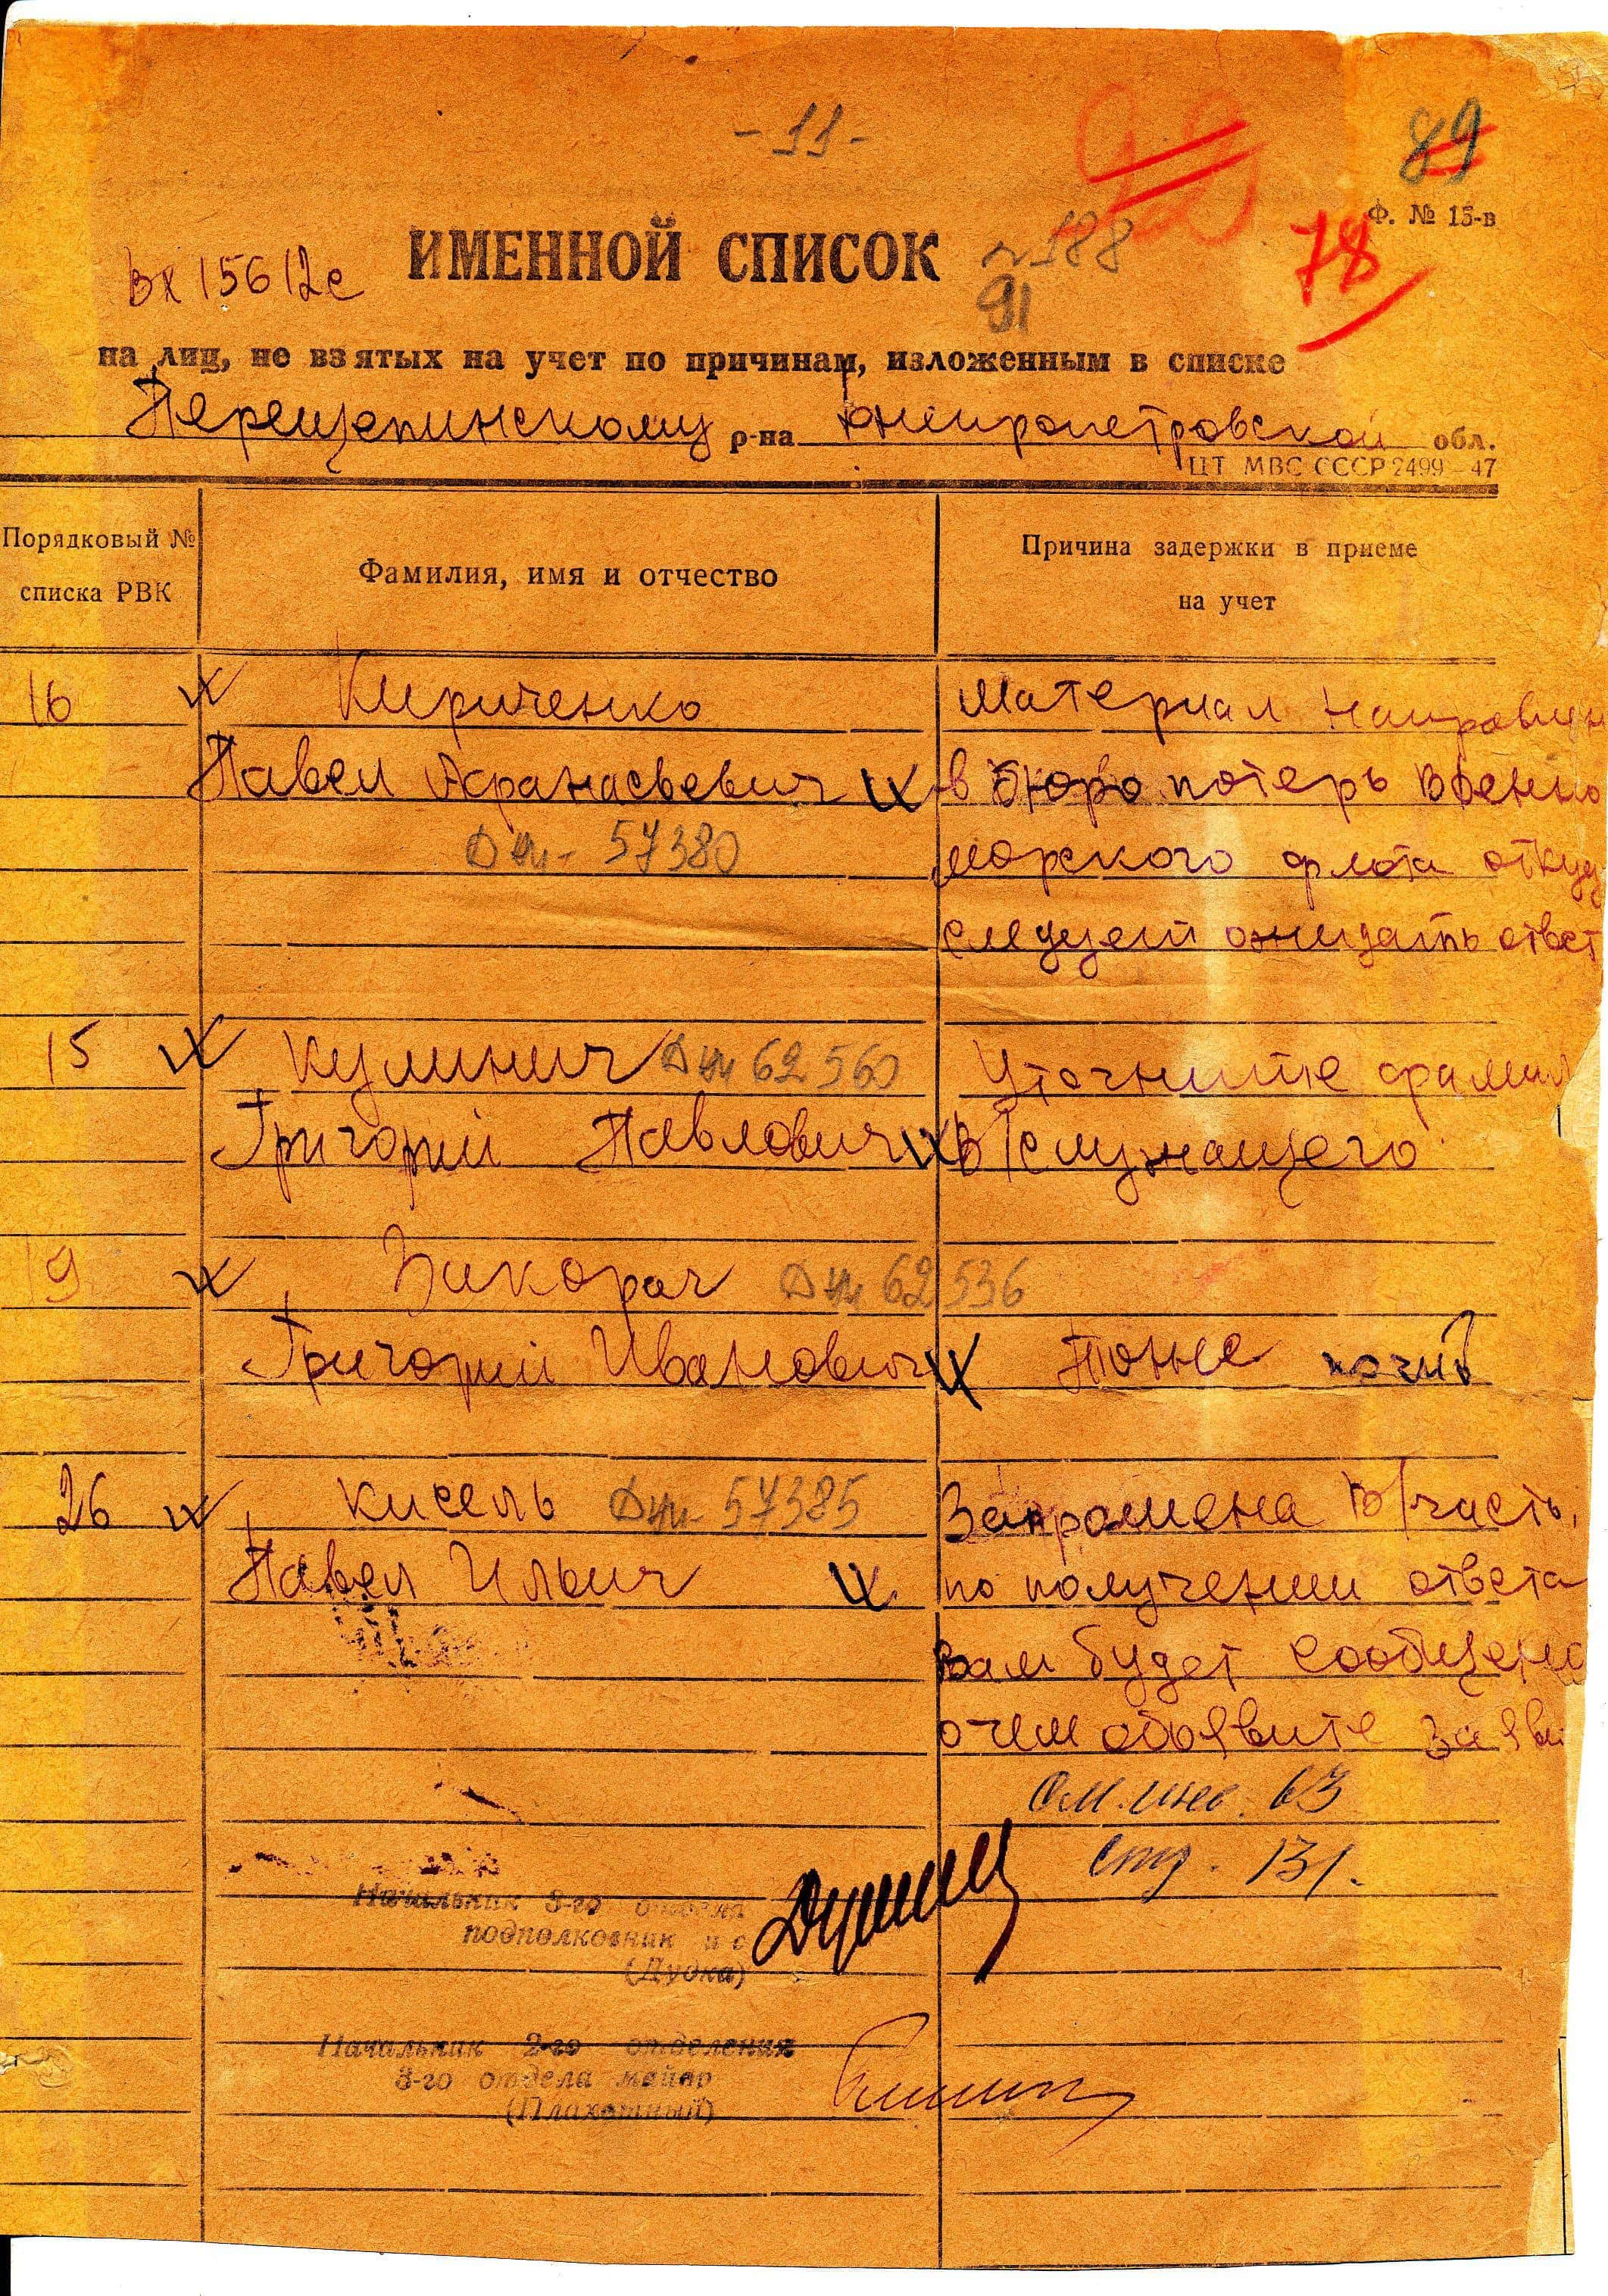 - 11 -
89
Ф. № 15-в
78
Вх 15612с
ИМЕННОЙ СПИСОК
188
91
на лиц, не взятых на учет по причинам, изложенным в списке
Перещепинскому р-на Днепропетровской обл.
ЦТ МВС СССР 2499—47
Порядковый № списка РВК
Фамилия, имя и отчество
Причина задержки в приеме на учет
16 Кириченко Материал направлен
Павел Афанасьевич в Бюро потерь военно
57380 морского флота откуд
следует ожидать ответ
15 Кулинич 62560 Уточните фамил
Григорий Павлович В/служащего
19 Зикорач 62536
Григорий Иванович Тоже погиб
26 Кисель 57385 Запрошена В/часть,
Павел Ильич по получении ответа
вам будет сообщено
о чем объявите заяви
См. инв. 63
стр. 131.
Начальник 3-го отдела
подполковник и с
Начальник 2-го отделения
3-го отдела майор
(Плахотный)